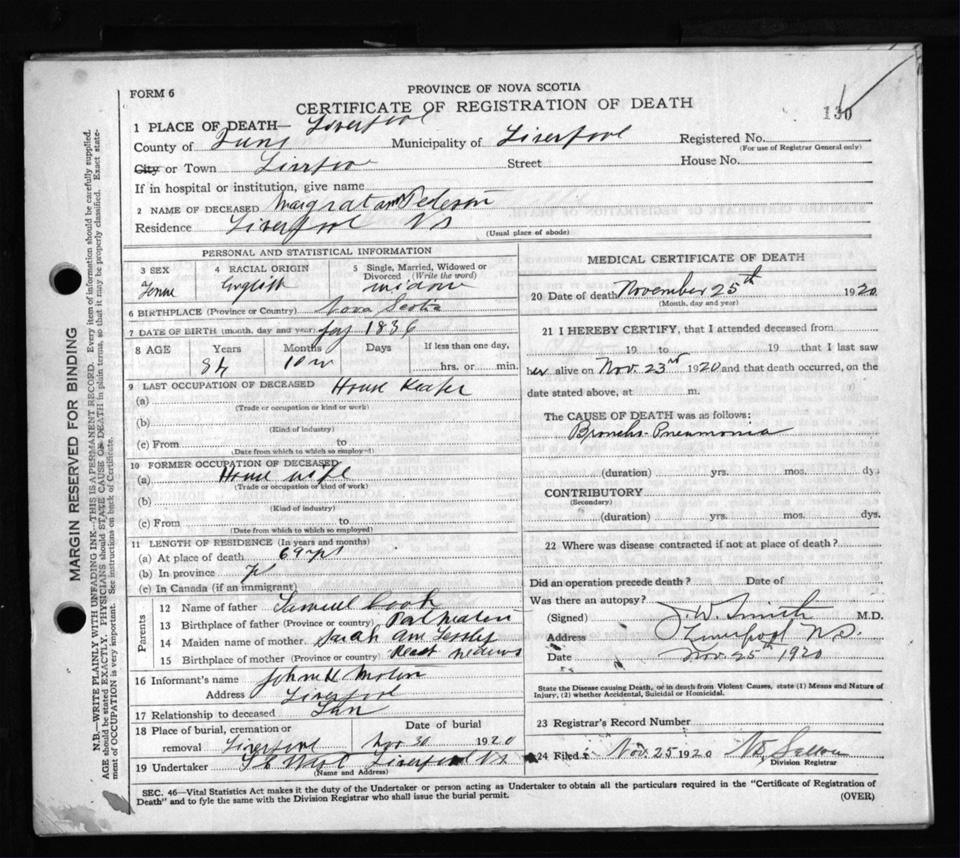 FORM 6
PROVINCE OF NOVA SCOTIA
CERTIFICATE OF REGISTRATION OF DEATH
130
1 PLACE OF DEATH— Liverpool
County of Municipality of Liverpool Registered No.
(For use of Registrar General only)
City or Town Street House No.
If in hospital or institution, give name
2 NAME OF DECEASED Margrat ann Pederson
Residence Liverpool NS
(Usual place of abode)
PERSONAL AND STATISTICAL INFORMATION
3 SEX 4 RACIAL ORIGIN 5 Single, Married, Widowed or Divorced (Write the word)
English widow
6 BIRTHPLACE (Province or Country) Nova Scotia
7 DATE OF BIRTH (month, day and year) 1836
8 AGE Years Months Days If less than one day,
84 10 m hrs. or min.
9 LAST OCCUPATION OF DECEASED House Keeper
(a)
(Trade or occupation or kind of work)
(b)
(Kind of industry)
(c) From to
(Date from which to which so employed)
10 FORMER OCCUPATION OF DECEASED
(a) House wife
(Trade or occupation or kind of work)
(b)
(Kind of industry)
(c) From to
(Date from which to which so employed)
11 LENGTH OF RESIDENCE (In years and months)
(a) At place of death 69 yrs
(b) In province
(c) In Canada (if an immigrant)
Parents
12 Name of father Samuel Cook
13 Birthplace of father (Province or country)
14 Maiden name of mother Sarah Ann
15 Birthplace of mother (Province or country)
16 Informant's name John H
Address Liverpool
17 Relationship to deceased
18 Place of burial, cremation or removal Liverpool Date of burial 30 1920
19 Undertaker West Liverpool NS
(Name and Address)
MEDICAL CERTIFICATE OF DEATH
20 Date of death November 25th 1920
(Month, day and year)
21 I HEREBY CERTIFY, that I attended deceased from
19 to 19 that I last saw
her alive on Nov. 23rd 1920 and that death occurred, on the
date stated above, at m.
The CAUSE OF DEATH was as follows:
Broncho-Pneumonia
(duration) yrs. mos. dys.
CONTRIBUTORY
(Secondary)
(duration) yrs. mos. dys.
22 Where was disease contracted if not at place of death?
Did an operation precede death? Date of
Was there an autopsy?
(Signed) J. W. Smith M.D.
Address Liverpool N.S.
Date Nov. 25th 1920
State the Disease causing Death, or in death from Violent Causes, state (1) Means and Nature of Injury, (2) whether Accidental, Suicidal or Homicidal.
23 Registrar's Record Number
24 Filed Nov. 25 1920
Division Registrar
SEC. 46—Vital Statistics Act makes it the duty of the Undertaker or person acting as Undertaker to obtain all the particulars required in the "Certificate of Registration of
Death" and to fyle the same with the Division Registrar who shall issue the burial permit.
(OVER)
MARGIN RESERVED FOR BINDING
N.B.—WRITE PLAINLY WITH UNFADING INK—THIS IS A PERMANENT RECORD. Every item of information should be carefully supplied.
AGE should be stated EXACTLY. PHYSICIANS should STATE CAUSE OF DEATH in plain terms, so that it may be properly classified. Exact state-
ment of OCCUPATION is very important. See instructions on back of Certificate.